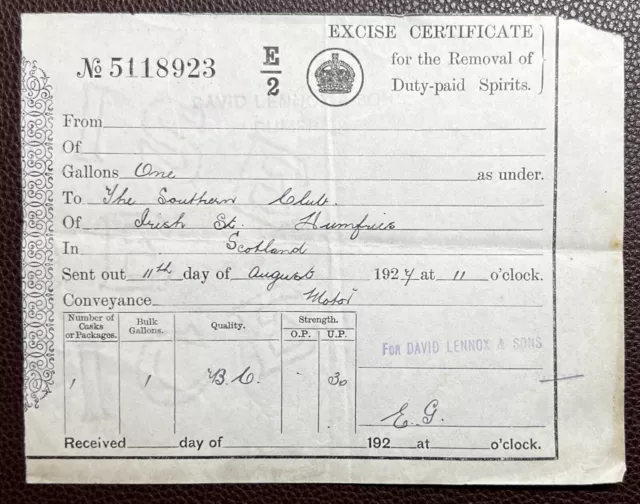 EXCISE CERTIFICATE
for the Removal of
Duty-paid Spirits.
№ 5118923
E/2
From
Of
Gallons One as under.
To The Southern Club.
Of Irish St. Humfries
In Scotland
Sent out 11th day of August 1927 at 11 o'clock.
Conveyance Motor
Number of Casks or Packages. Bulk Gallons. Quality. Strength.
O.P. U.P.
1 1 B.C. 30
FOR DAVID LENNOX & SONS
E. G.
Received day of 192 at o'clock.